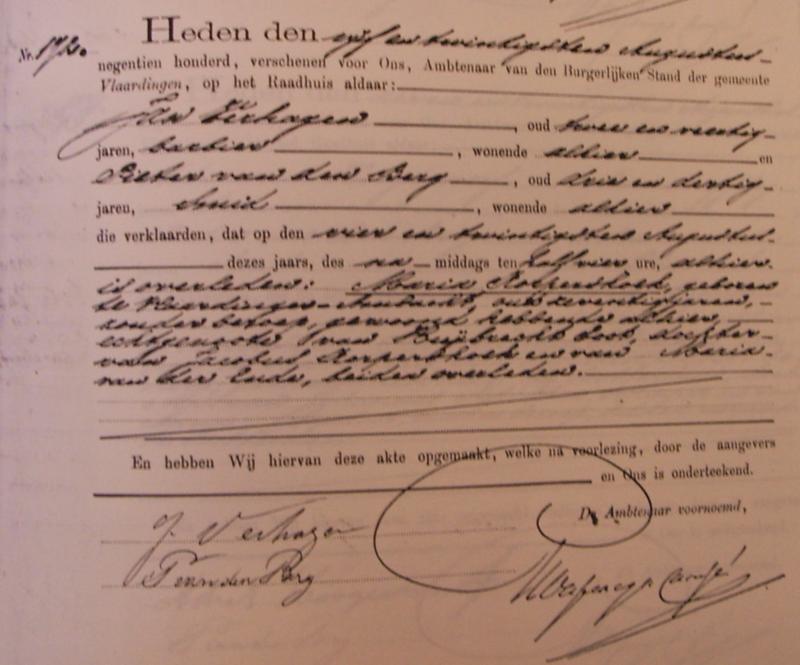 Heden den vijf en twintigsten Augustus
Nr. 172.
negentien honderd, verschenen voor Ons, Ambtenaar van den Burgerlijken Stand der gemeente
Vlaardingen, op het Raadhuis aldaar:
Jan Verhagen, oud twee en veertig
jaren, barbier, wonende alhier en
Pieter van den Berg, oud drie en dertig
jaren, smid, wonende alhier
die verklaarden, dat op den vier en twintigsten Augustus
dezes jaars, des na middags ten half vier ure, alhier
is overleden: Maria Korpershoek, geboren
te Vlaardinger-Ambacht, oud zeventig jaren,
zonder beroep, gewoond hebbende alhier,
echtgenoote van Huijbrecht Boot, dochter
van Jacobus Korpershoek en van Maria
van der Ende, beiden overleden.
En hebben Wij hiervan deze akte opgemaakt, welke na voorlezing, door de aangevers
en Ons is onderteekend.
De Ambtenaar voornoemd,
J. Verhagen
P. van den Berg